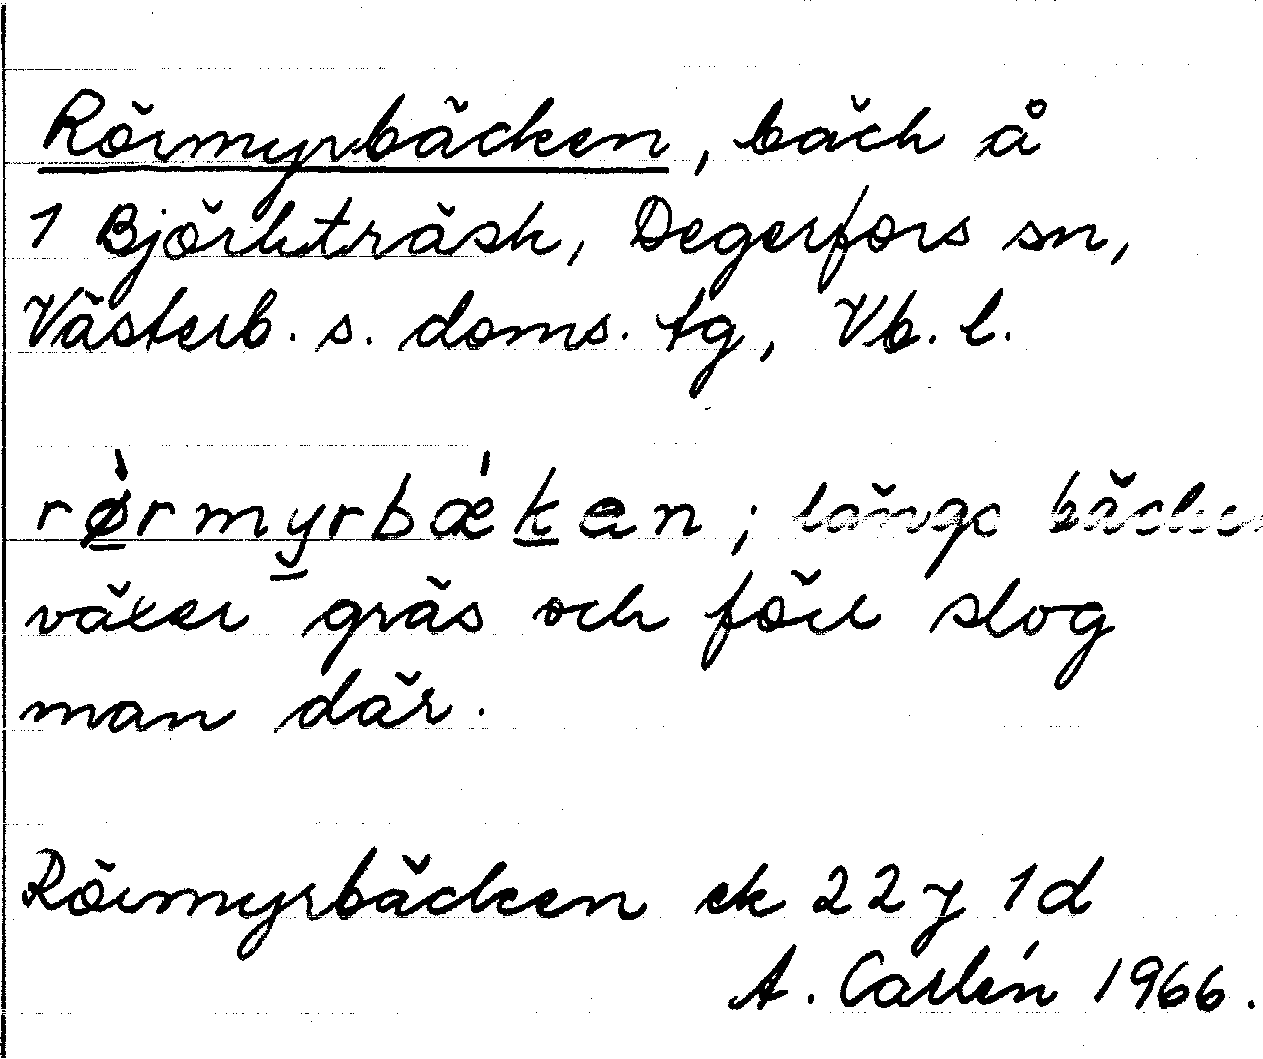 Rörmyrbäcken, bäck å
1 Björkträsk, Degerfors sn,
Västerb. s. doms. tg, Vb. l.
rø̀rmyrbǽkan; längs bäcken
växer gräs och förr slog
man där.
Rörmyrbäcken ek 22 J 1d
A. Carlén 1966.